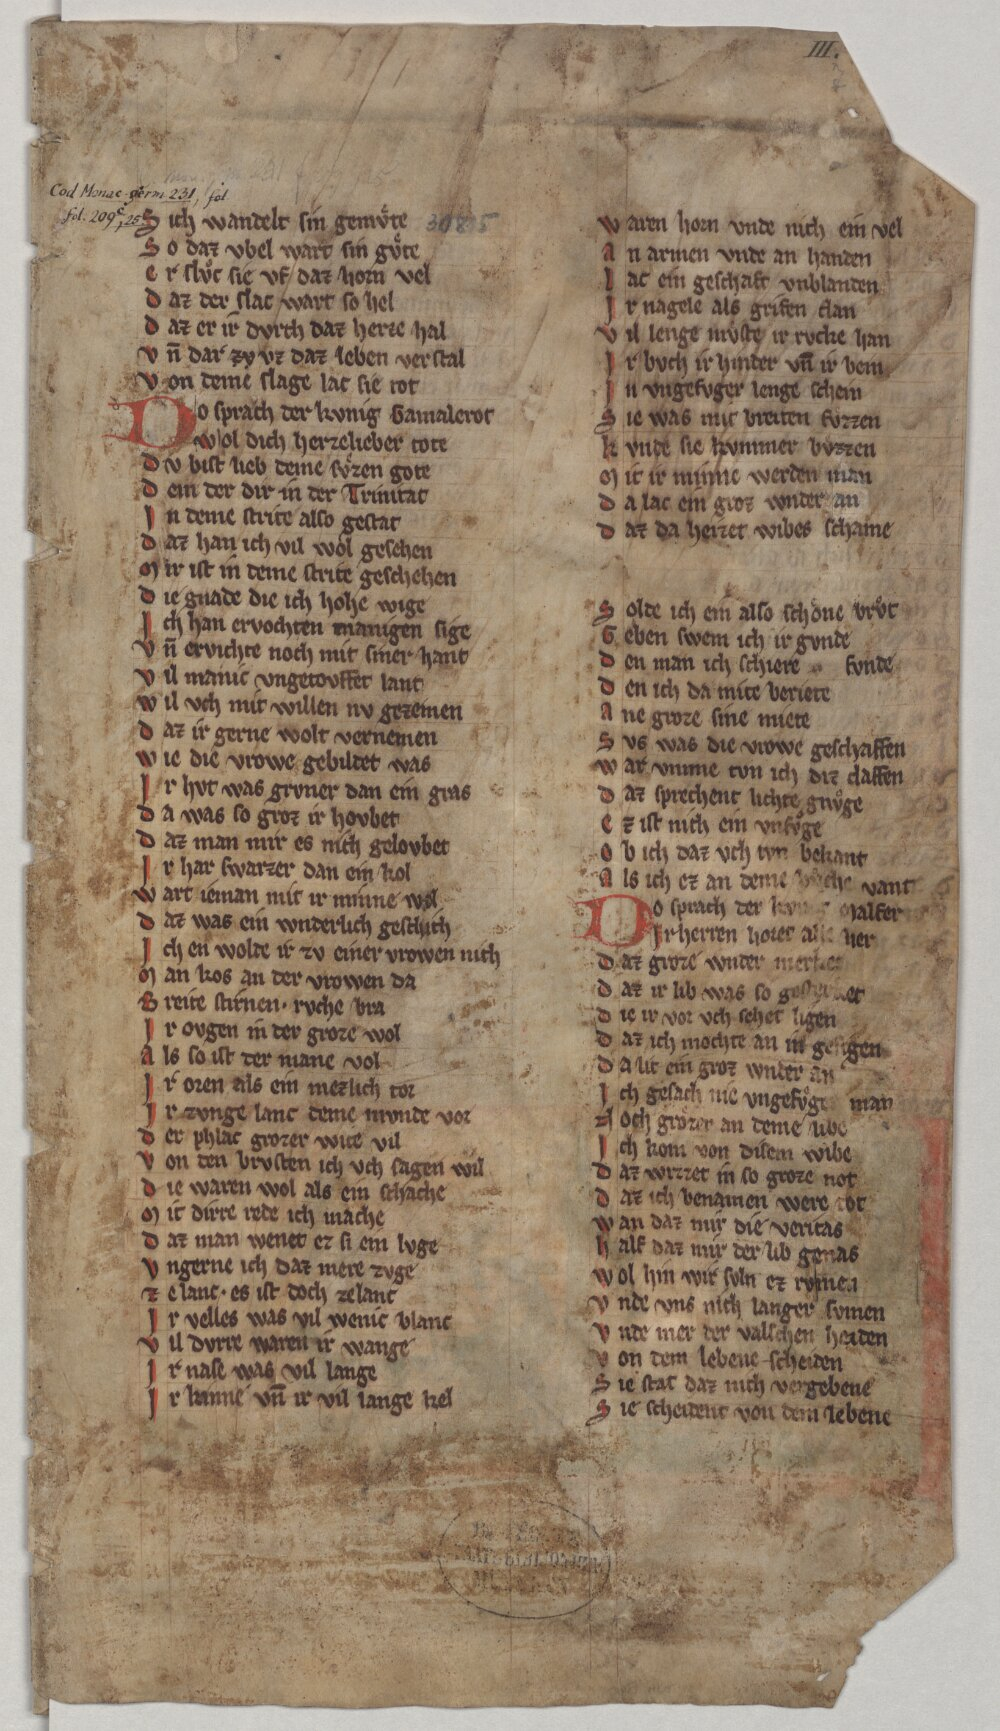 III.
Cod Monac germ 231, fol
fol. 209c, 25
30815
S ich wandelt sin gemvͦte
S o daz vbel wart sin gvͦte
e r slvͦc sie vf daz horn vel
d az der slac wart so hel
d az er ir dvrch daz herze hal
v n̄ dar zv vz daz leben verstal
v on deme slage lac sie tot
Do sprach der kvnig Gamalerot
wol dich herzelieber tote
d v bist lieb deme svͦzen gote
d em der dir in der Trinitat
I n deme strite also gestat
d az han ich vil wol gesehen
M ir ist in deme strite geschehen
d ie gnade die ich hohe wige
I ch han ervochten manigen sige
v n̄ ervichte noch mit siner hant
v il manic vngetovffet lant
w il vch mit willen nv gezemen
d az ir gerne wolt vernemen
w ie die vrowe gebildet was
I r hvt was grvner dan ein gras
d a was so groz ir hovbet
d az man mir es nich gelovbet
I r har swarzer dan ein kol
w art ieman mit ir minne wol
d az was ein wnderlich geschich
I ch en wolde ir zv einer vrowen nich
M an kos an der vrowen da
B reite stirnen · rvche bra
I r ovgen in der groze wol
A ls so ist der mane vol
I r oren als ein mezlich tor
I r zvnge lanc deme mvnde vor
d er phlac grozer wite vil
v on den brvsten ich vch sagen wil
d ie waren wol als ein schache
M it dirre rede ich mache
d az man wenet ez si ein lvge
v ngerne ich daz mere zvge
z e lanc · es ist doch zelanc
I r velles was vil wenic blanc
v il dvrre waren ir wange
I r nase was vil lange
I r kinne vn̄ ir vil lange kel
w aren horn vnde nich ein vel
A n armen vnde an handen
I ac ein geschaft vnblanden
I r nagele als grifen clan
v il lenge mvͦste ir rvcke han
I r bvch ir hinder vn̄ ir bein
I n vngefvger lenge schein
S ie was mit breiten fvzzen
k vnde sie kvmmer bvzzen
M it ir minne werden man
d a lac ein groz wnder an
d az da heizet wibes schame
S olde ich ein also schone brvͦt
G eben swem ich ir gvnde
d en man ich schiere fvnde
d en ich da mite beriete
A ne groze sine miete
S vs was die vrowe geschaffen
w ar vmme tvn ich diz claffen
d az sprechent lichte gnvͦge
e z ist nich ein vnfvͦge
o b ich daz vch tvn bekant
A ls ich ez an deme bvche vant
Do sprach der Malfer
Ir herren horet alle her
d az groze wnder
d az ir lib was so
d ie ir vor vch sehet ligen
d az ich mochte an in gesigen
d a lit ein groz wnder an
I ch gesach nie vngefvͦge man
N och grozer an deme libe
I ch kom von disem wibe
d az wizzet in so groze not
d az ich benamen were tot
w an daz mir die veritas
h alf daz mir der lib genas
w ol hin wir svln ez rvmen
v nde vns nich langer svmen
v nde mer der valschen heiden
v on dem lebene scheiden
S ie stat daz nich vergebene
S ie scheident von dem lebene